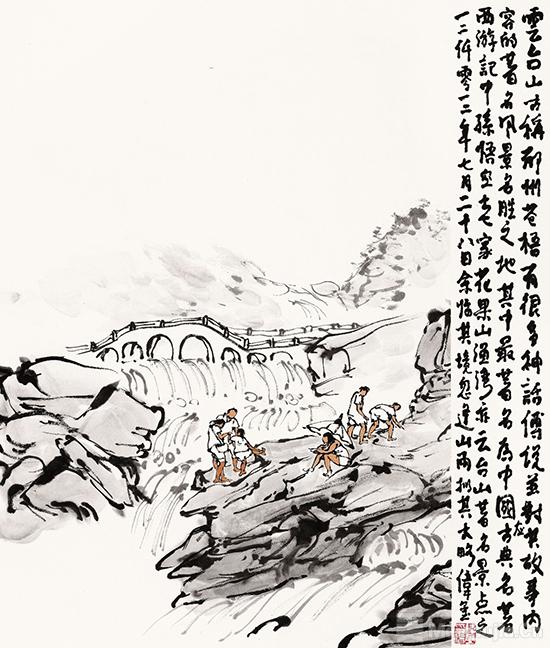 雲台山古稱郁州苍梧有很多神話傳说並對应其故事内
容的著名風景名胜之地其中最著名為中國古典名著
西游記中孫悟空老家花果山渔湾亦云台山著名景点之
一二仟零一二年七月二十八日余临其境忽逢山雨拟其大略偉